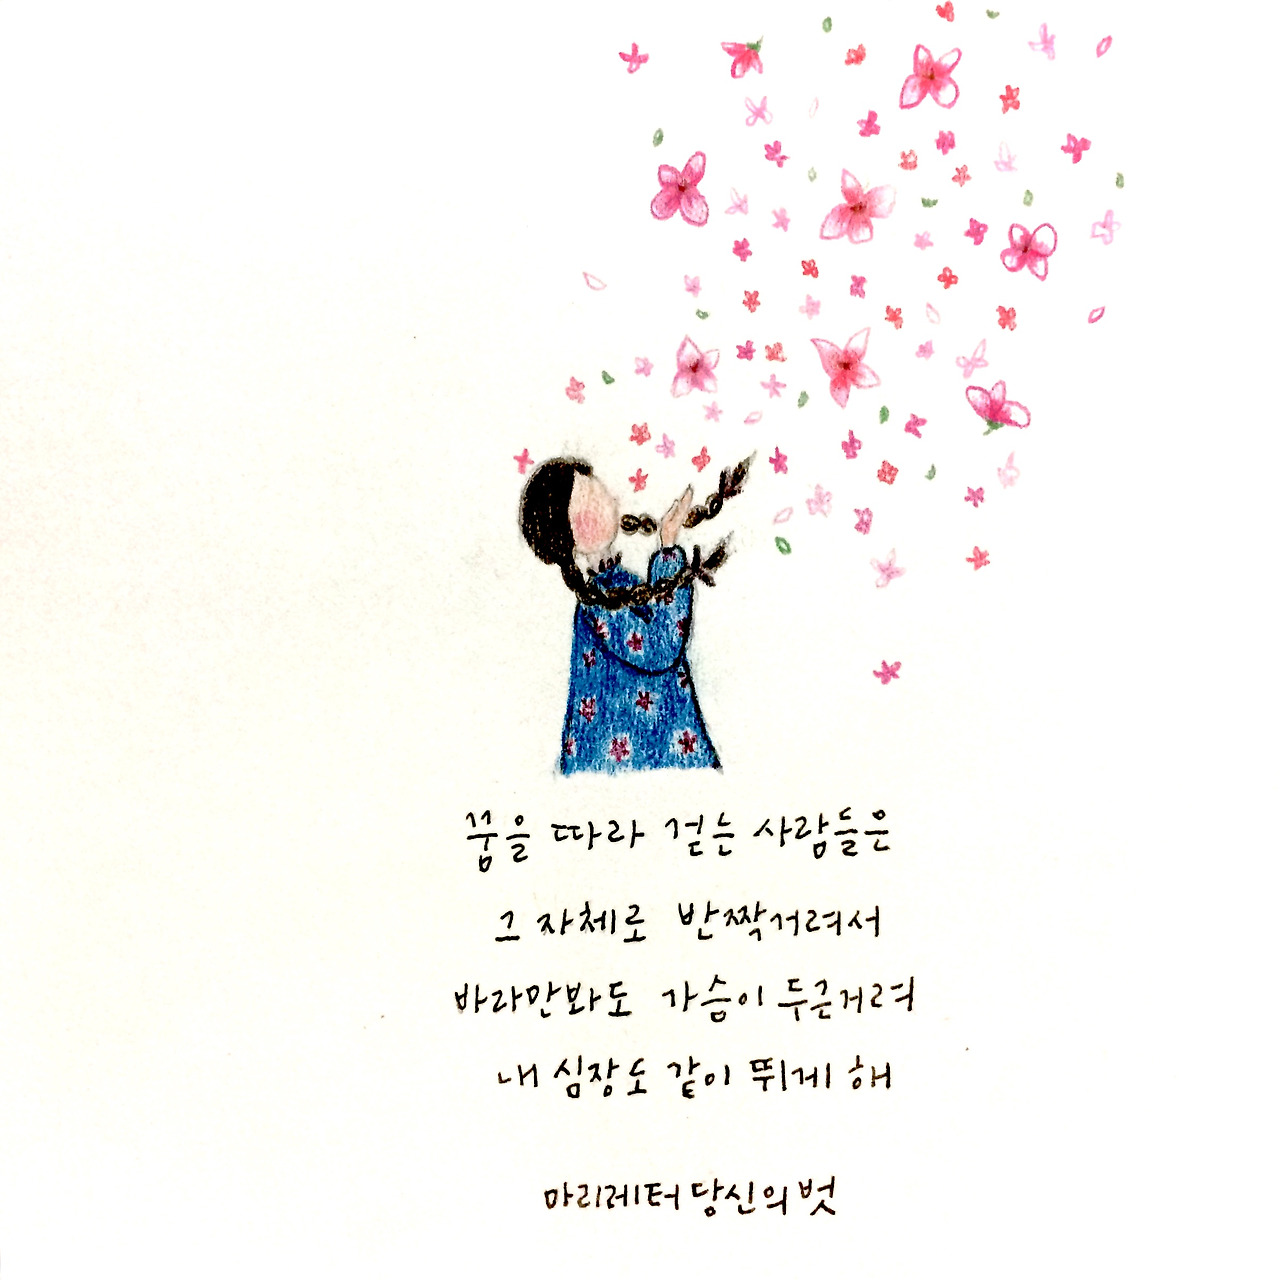 꿈을 따라 걷는 사람들은
그 자체로 반짝거려서
바라만봐도 가슴이 두근거려
내 심장도 같이 뛰게 해
마리레터 당신의 벗